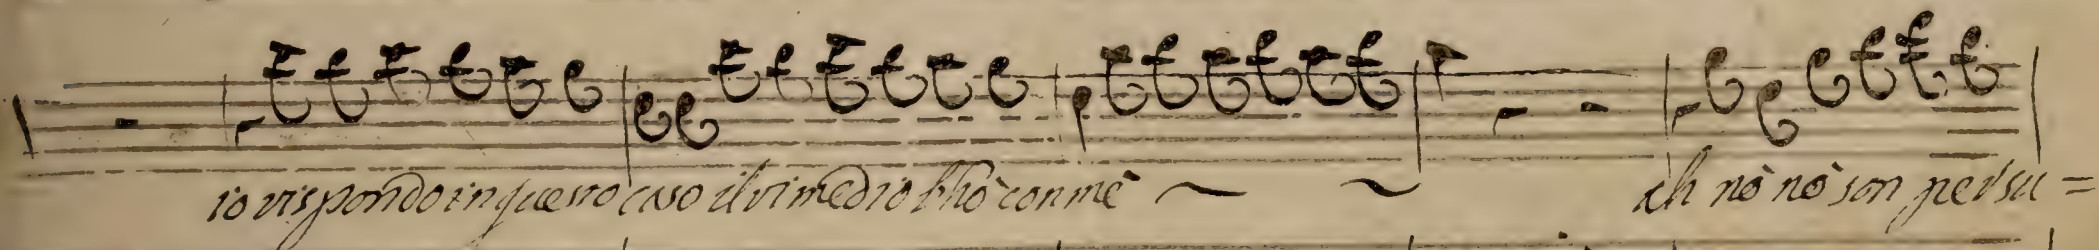 io rispondo in questo caso il rimedio l'hò con mè ~ ~ ah nò nò son persu=